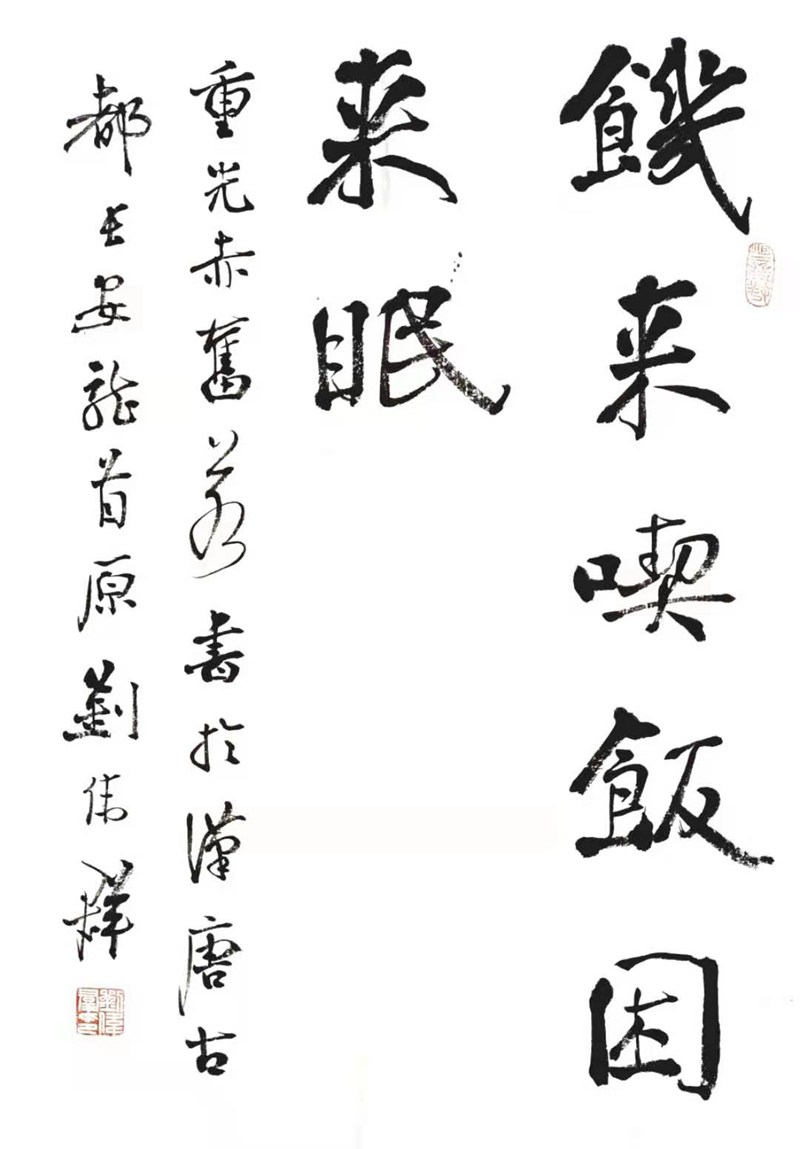 饑来喫飯困
来眠
重光赤奮若書於漢唐古
都長安龍首原劉偉群
劉偉羣印